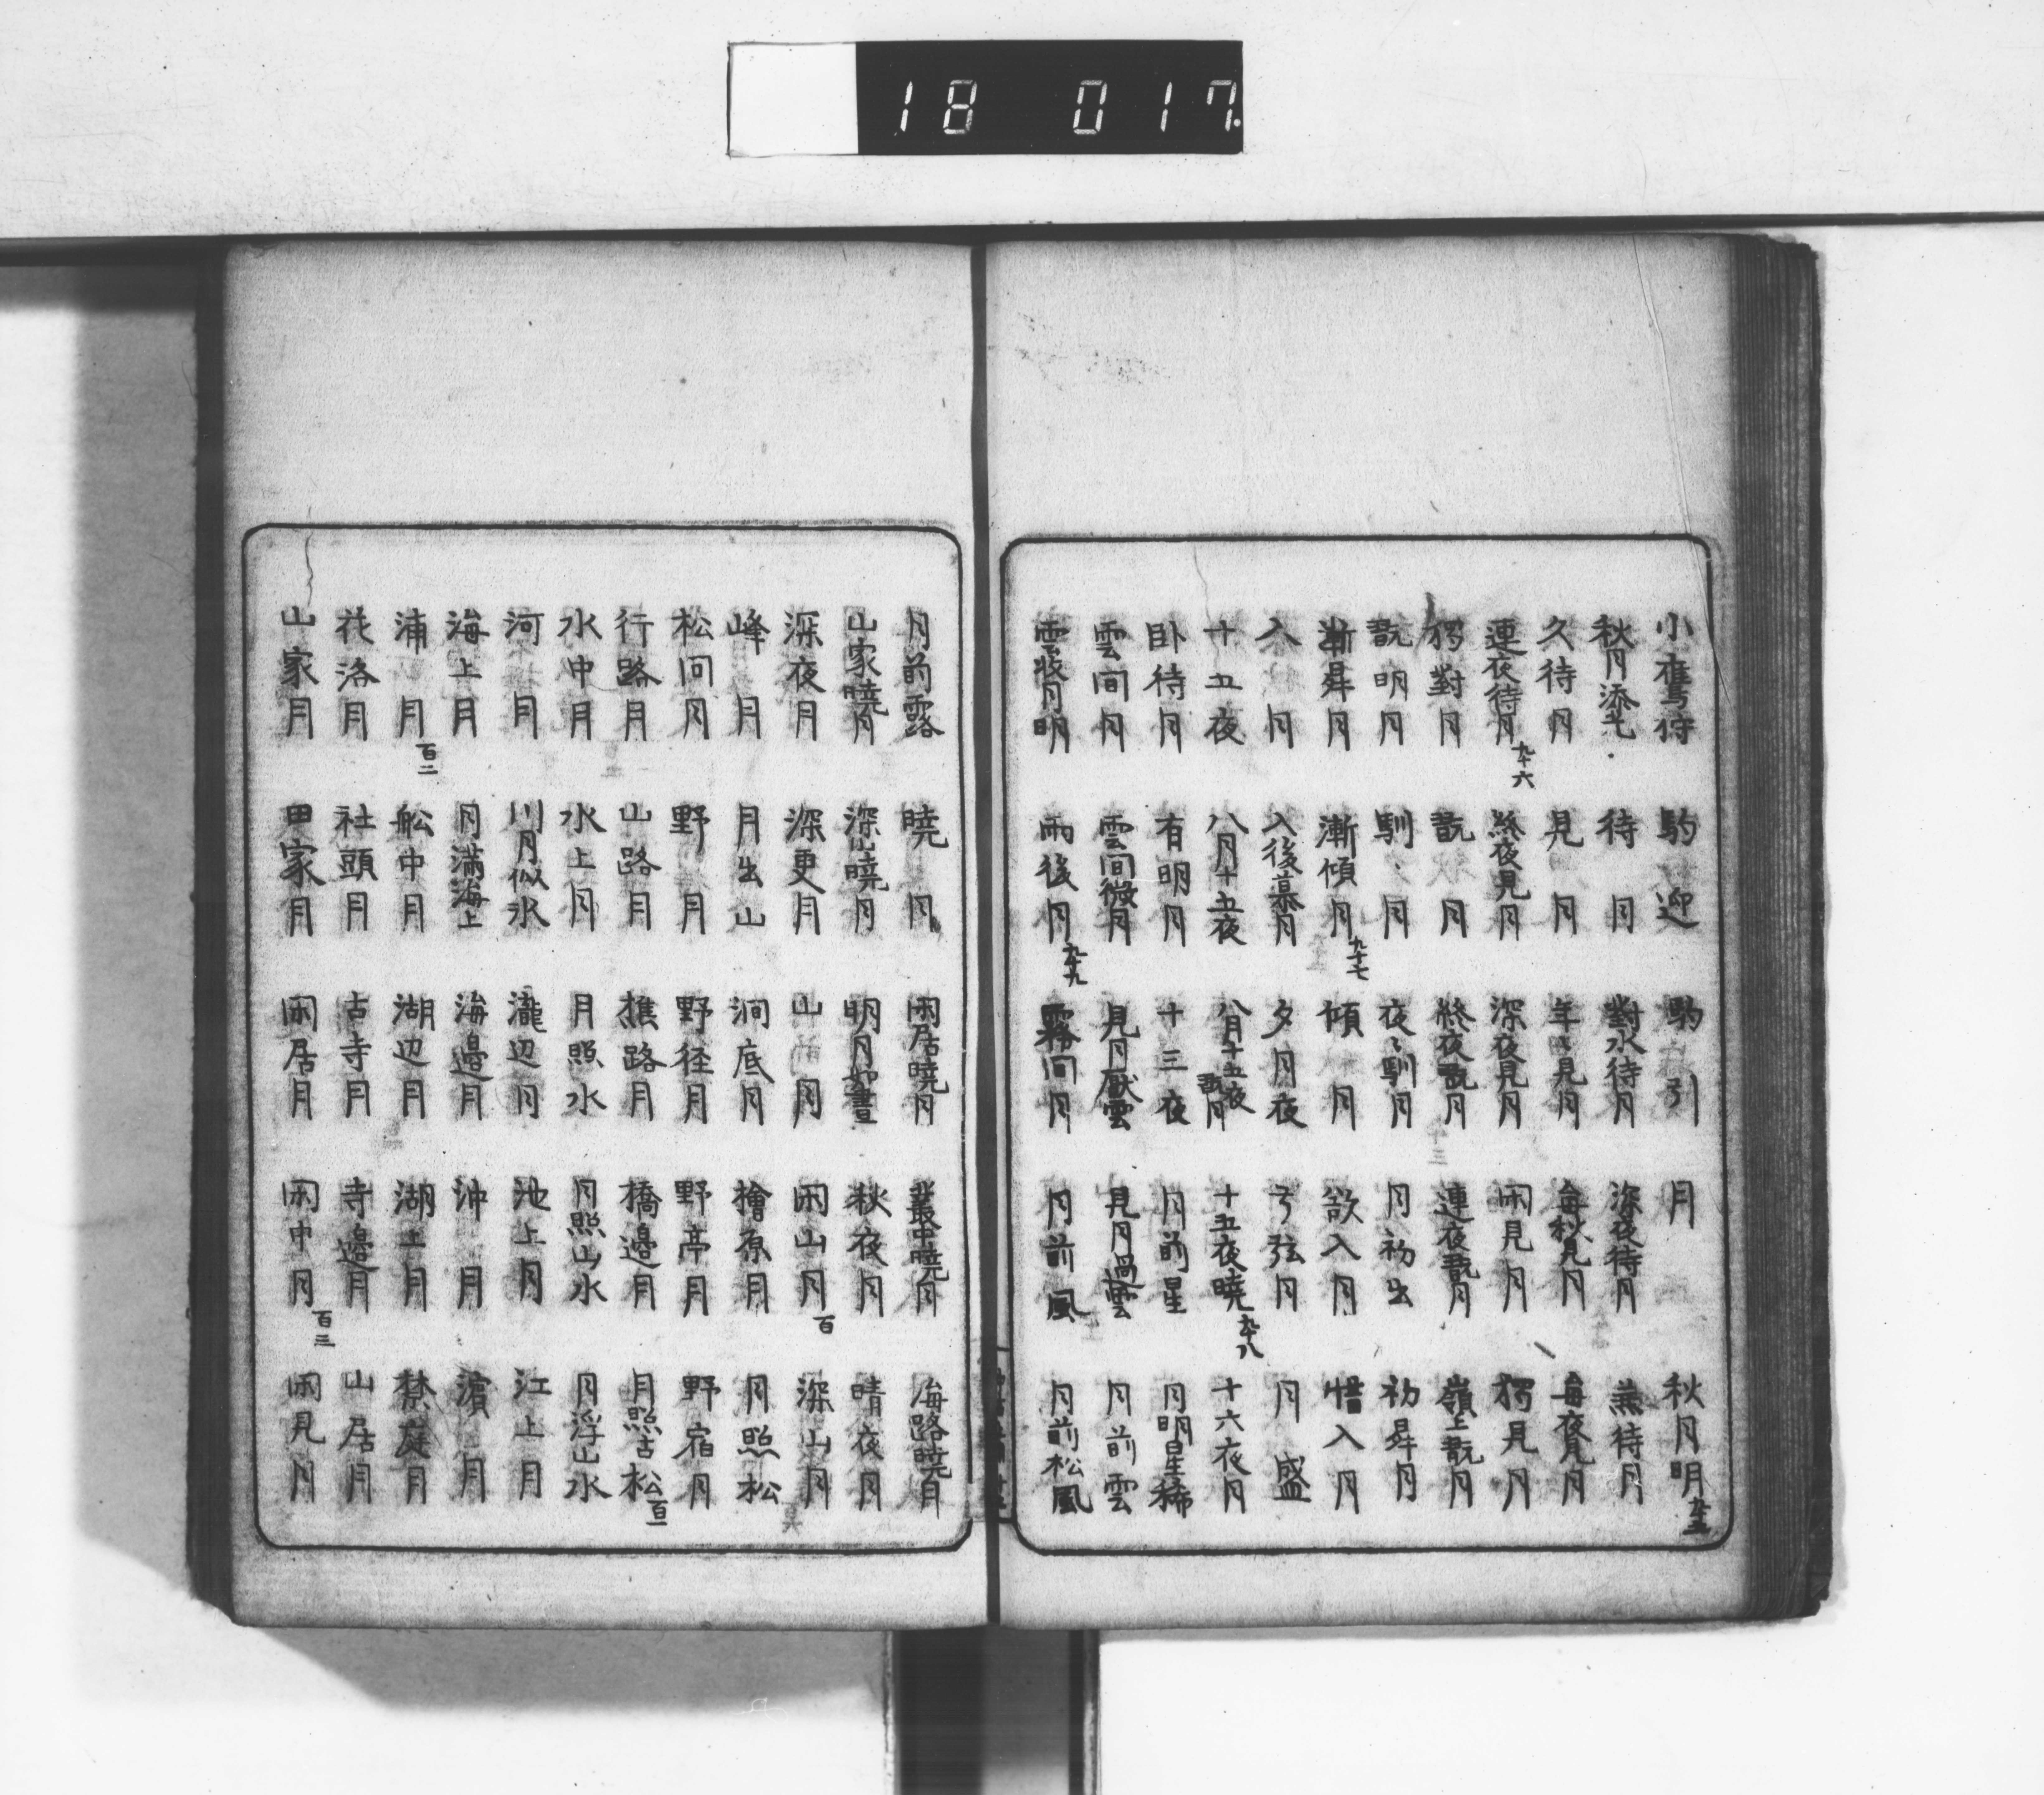 18 017.
小鷹狩 駒迎 駒引 月 秋月明
秋月添光 待月 對水待月 深夜待月 兼待月
久待月 見月 年々見月 毎秋見月 毎夜見月
連夜待月 九十六 終夜見月 深夜見月 閑見月 獨見月
獨對月 翫月 終夜翫月 連夜翫月 嶺上翫月
翫明月 馴月 夜々馴月 月初出 初昇月
漸昇月 漸傾月 九十七 傾月 欲入月 惜入月
入月 入後慕月 夕月夜 弓弦月 月盛
十五夜 八月十五夜 八月十五夜翫月 十五夜曉 九十八 十六夜月
卧待月 有明月 十三夜 月前星 月明星稀
雲間月 雲間微月 見月厭雲 見月過雲 月前雲
雲收月明 雨後月 九十九 霧間月 月前風 月前松風
月前露 曉月 閑居曉月 叢中曉月 海路曉月
山家曉月 深山曉月 明月如晝 秋夜月 晴夜月
深夜月 深更月 山月 閑山月 百 深山月
峰月 月出山 澗底月 檜原月 月照松
松間月 野月 野径月 野亭月 野宿月
行路月 山路月 樵路月 橋邊月 月照古松 百一
水中月 水上月 月照水 月照山水 月浮山水
河月 川月似氷 瀧辺月 池上月 江上月
海上月 月滿海上 海邊月 沖月 濱月
浦月 百二 舩中月 湖辺月 湖上月 禁庭月
花洛月 社頭月 古寺月 寺邊月 山居月
山家月 田家月 閑居月 閑中月 百三 閑見月